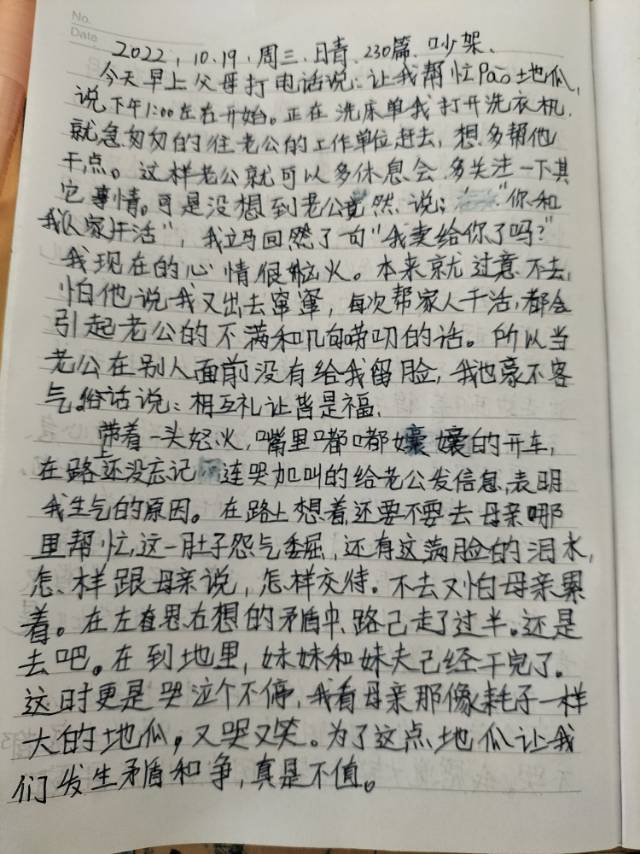 No.
Date
2022.10.19.周三.日青.230篇.吵架.
今天早上父母打电话说:让我帮忙Pao地瓜,
说下午1:00左右开始。正在洗床单我打开洗衣机.
就急匆匆的往老公的工作单位赶去,想多帮他
干点。这样老公就可以多休息会.多关注一下其
它事情。可是没想到老公竟然.说:"你和
我人家干活",我立马回然了句"我卖给你了吗?"
我现在的心情很恼火。本来就过意不去,
怕他说我又出去窜窜,每次帮家人干活,都会
引起老公的不满和几句唠叨的话。所以当
老公在别人面前没有给我留脸,我也豪不客
气。俗话说:相互礼让皆是福.
带着一头怒火,嘴里嘟嘟囔囔的开车,
在路上还没忘记连哭加叫的给老公发信息,表明
我生气的原因。在路上想着,还要不要去母亲哪
里帮忙,这一肚子怨气委屈,还有这满脸的泪水,
怎、样跟母亲说,怎样交待。不去又怕母亲累
着。在左思右想的矛盾中、路己走了过半。还是
去吧。在到地里,妹妹和妹夫己经干完了。
这时更是哭泣个不停,我看母亲那像耗子一样
大的地瓜,又哭又笑。为了这点地瓜让我
们发生矛盾和争,真是不值。